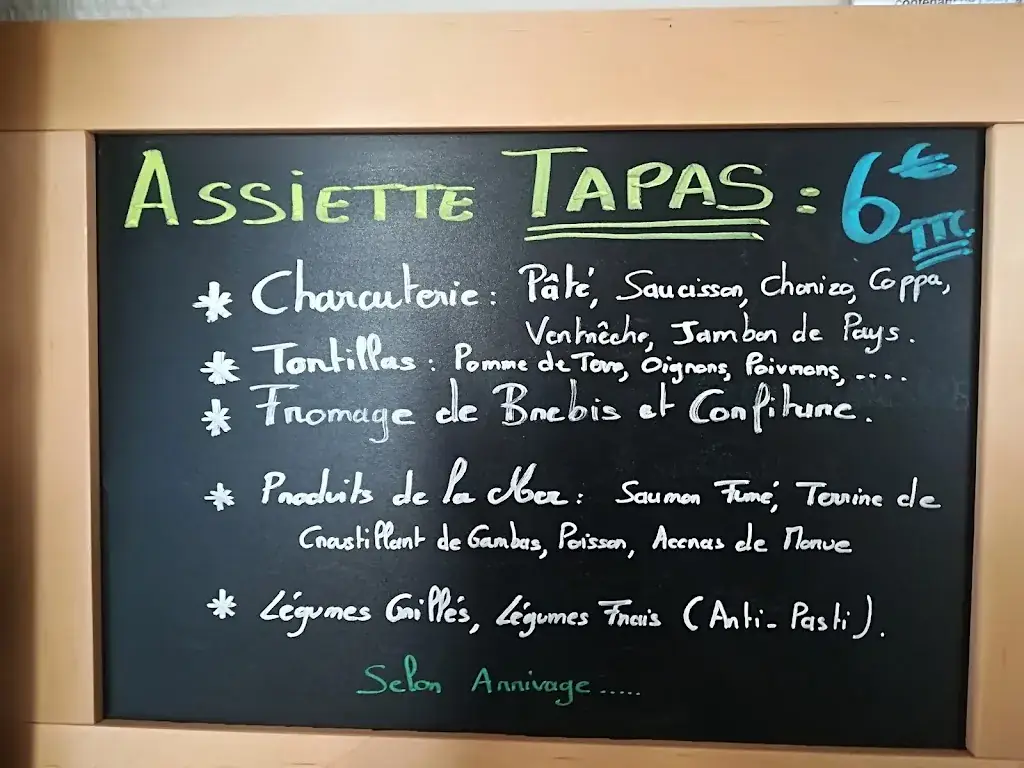 contenan
ASSIETTE TAPAS : 6€ TTC.
* Charcuterie : Pâté, Saucisson, Chorizo, Coppa,
Ventrêche, Jambon de Pays.
* Tortillas : Pomme de Terre, Oignons, Poivrons, ....
* Fromage de Brebis et Confiture.
* Produits de la Mer : Saumon Fumé, Terrine de
Croustillant de Gambas, Poisson, Accras de Morue
* Légumes Grillés, Légumes Frais (Anti-Pasti).
Selon Arrivage.....